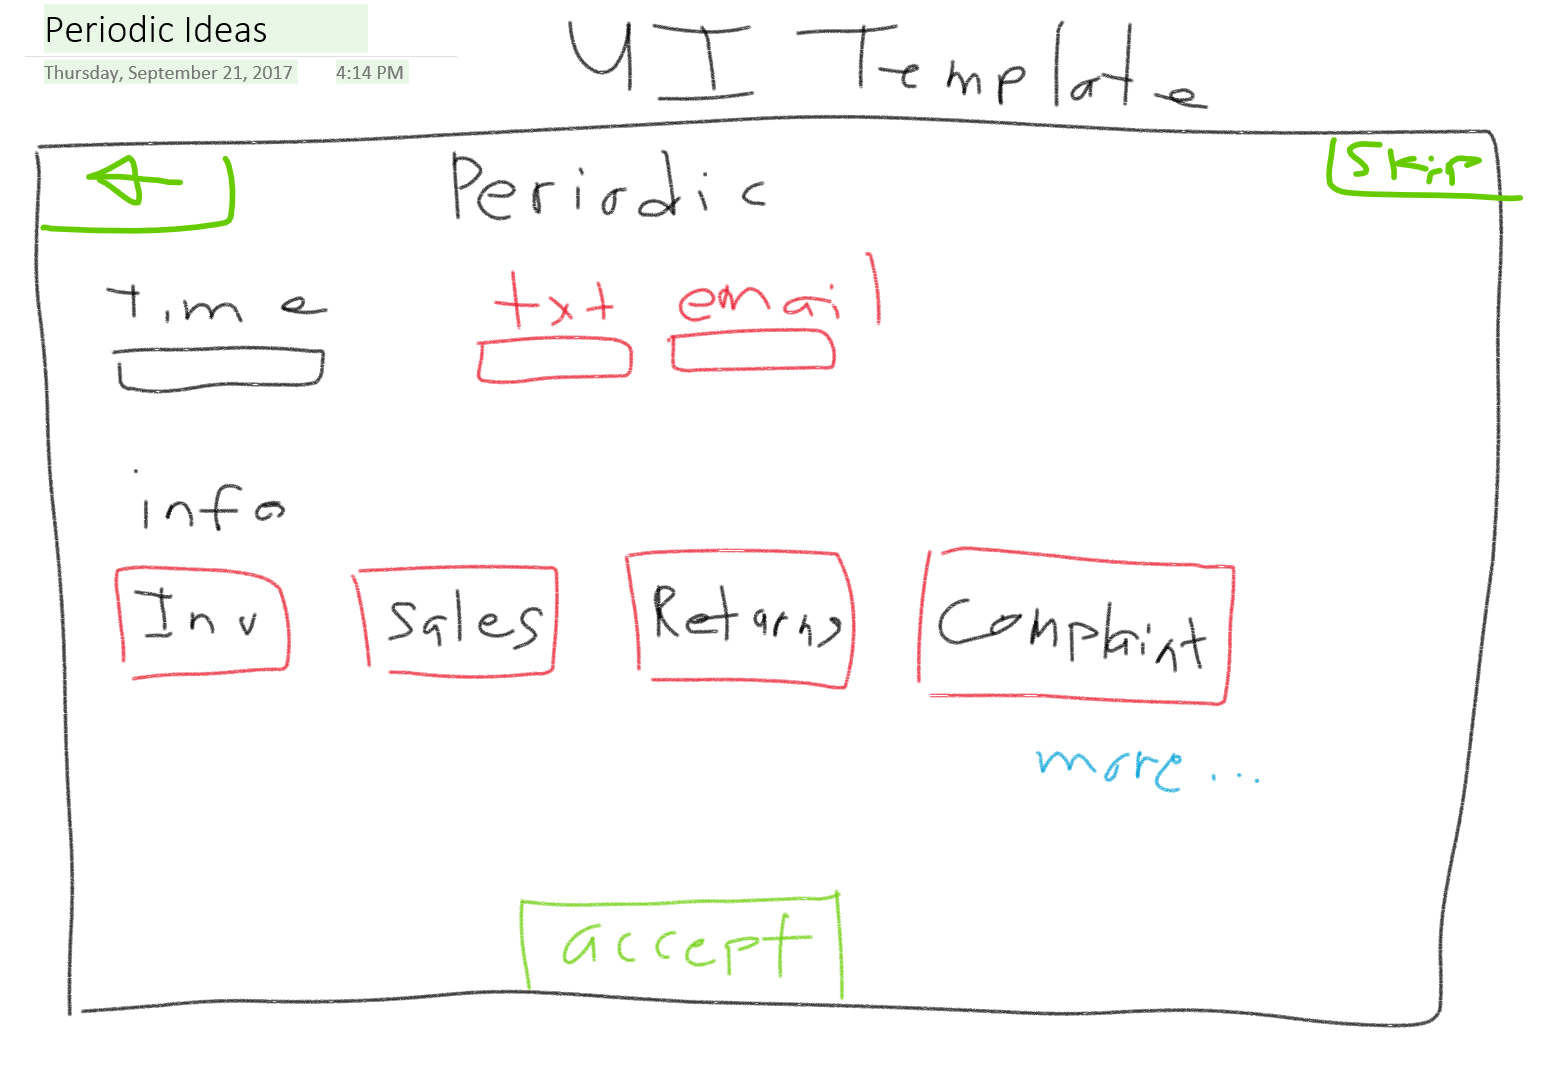 Periodic Ideas
Thursday, September 21, 2017 4:14 PM
UI Template
Periodic
Skip
time txt email
info
Inv Sales Returns Complaint
more...
accept